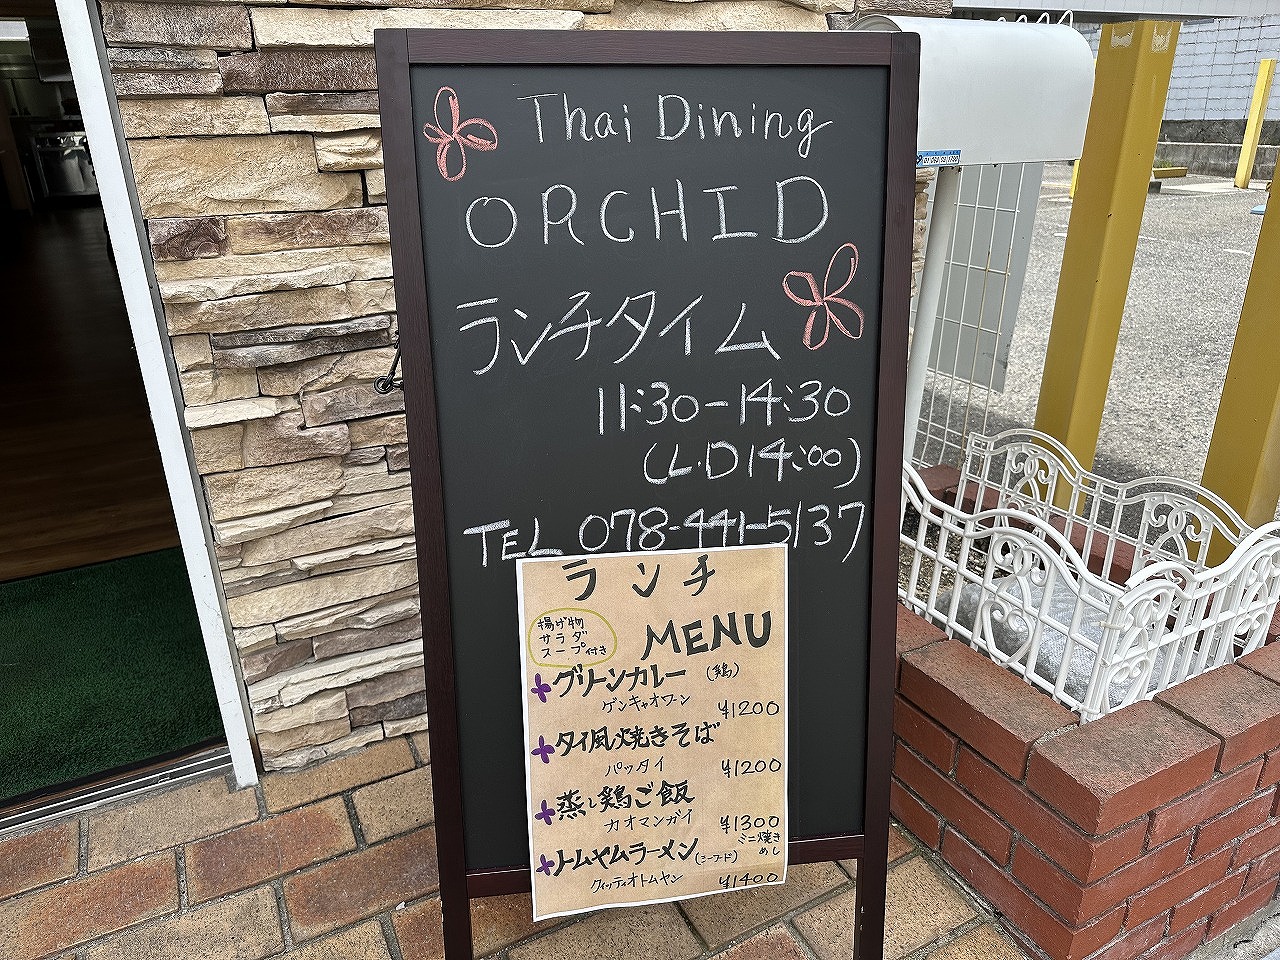 Thai Dining
ORCHID
ランチタイム
11:30-14:30
(L.D 14:00)
TEL 078-441-5137
ランチ
MENU
揚げ物
サラダ
スープ付き
グリーンカレー(鶏)
ゲンキャオワーン
¥1200
タイ風焼きそば
パッタイ
¥1200
蒸し鶏ご飯
カオマンガイ
¥1300
トムヤムラーメン(シーフード)
ミニ焼き
めし
クィッティオトムヤン
¥1400